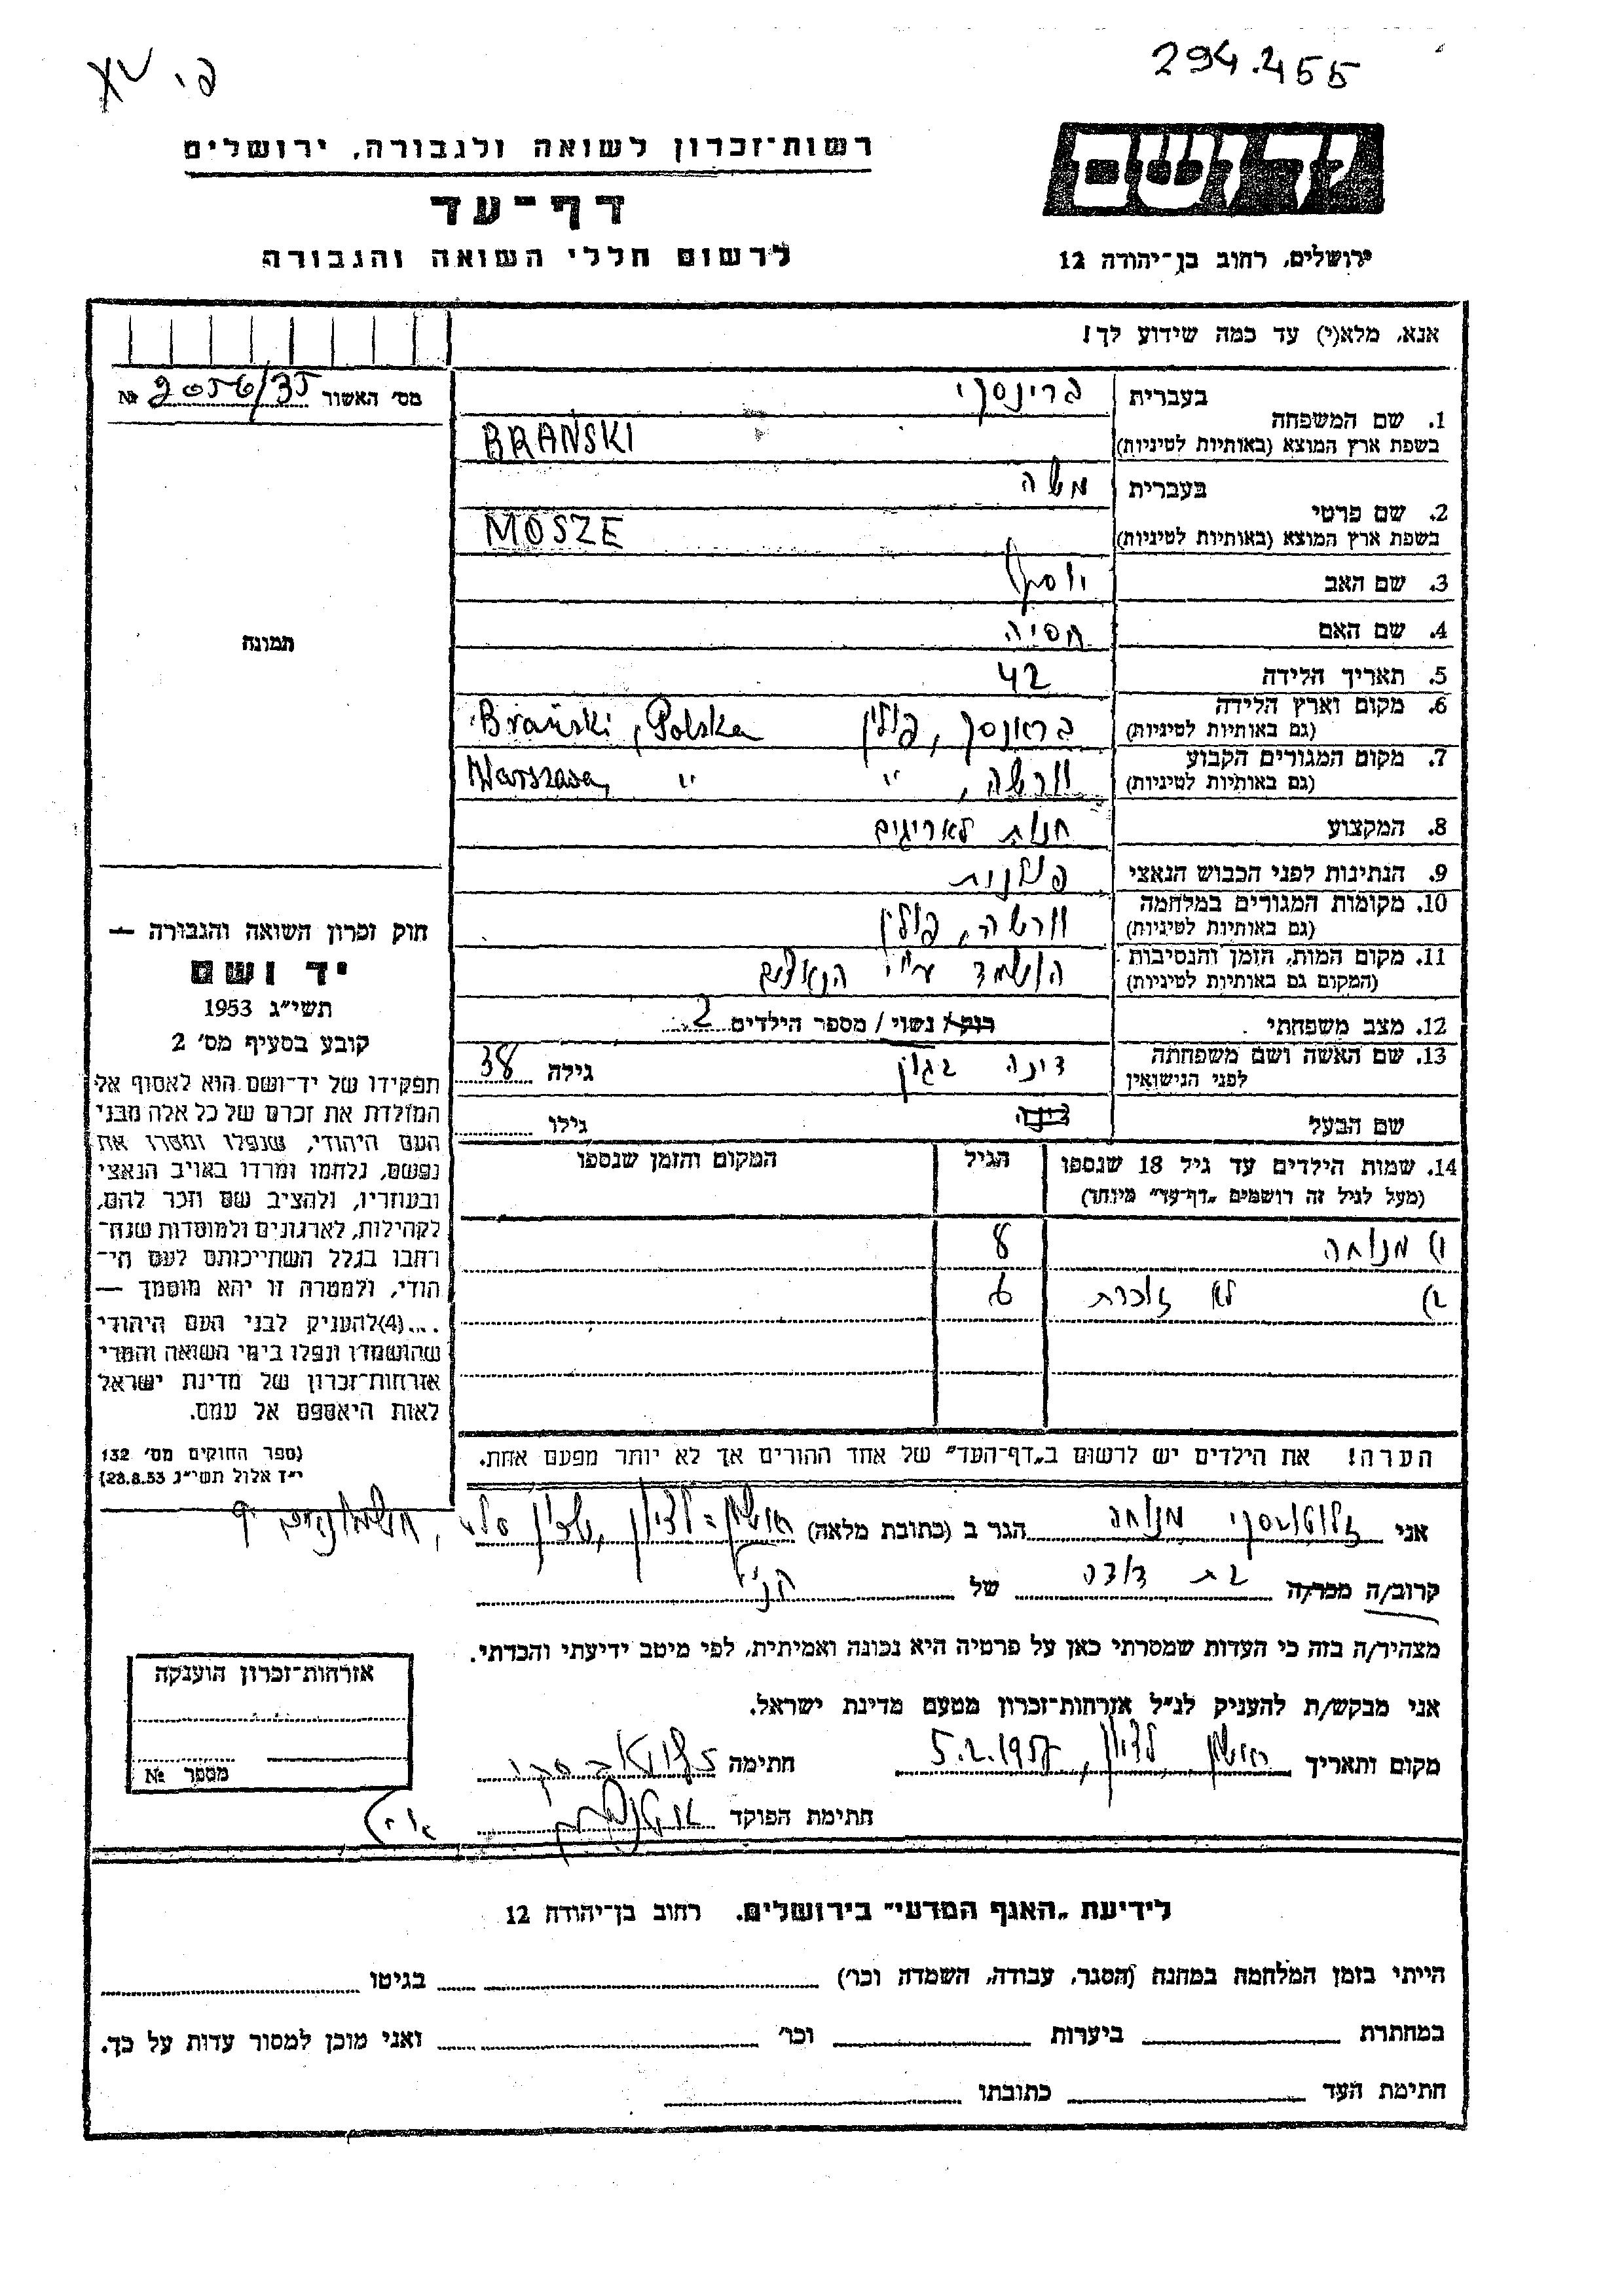 294.455
רשות־זכרון לשואה ולגבורה, ירושלים
דף־עד
לרשום חללי השואה והגבורה
יד ושם
ירושלים, רחוב בן־יהודה 12
אנא, מלא(י) עד כמה שידוע לך!
מס׳ האשור 2056/35 №
1. שם המשפחה
בעברית ברינסקי
בשפת ארץ המוצא (באותיות לטיניות) BRAŃSKI
2. שם פרטי
בעברית משה
בשפת ארץ המוצא (באותיות לטיניות) MOSZE
3. שם האב יוסף
4. שם האם חסיה
5. תאריך הלידה 42
6. מקום וארץ הלידה (גם באותיות לטיניות) בראנסק, פולין Brański, Polska
7. מקום המגורים הקבוע (גם באותיות לטיניות) וורשה, " " Warszawa
8. המקצוע חנות לאריגים
9. הנתינות לפני הכבוש הנאצי פולנית
10. מקומות המגורים במלחמה (גם באותיות לטיניות) וורשה, פולין
11. מקום המות, הזמן והנסיבות (המקום גם באותיות לטיניות) הושמד ע״י הנאצים
12. מצב משפחתי רוק/ נשוי / מספר הילדים 2
13. שם האשה ושם משפחתה לפני הנישואין דינה גילה 38
שם הבעל דינה גילו
14. שמות הילדים עד גיל 18 שנספו (מעל לגיל זה רושמים „דף־עד״ מיוחד) הגיל המקום והזמן שנספו
1) מנוחה 8
2) לא זוכרת 6
הערה! את הילדים יש לרשום ב„דף־העד״ של אחד ההורים אך לא יותר מפעם אחת.
תמונה
חוק זכרון השואה והגבורה —
יד ושם
תשי״ג 1953
קובע בסעיף מס׳ 2
תפקידו של יד־ושם הוא לאסוף אל
המולדת את זכרם של כל אלה מבני
העם היהודי, שנפלו ומסרו את
נפשם, נלחמו ומרדו באויב הנאצי
ובעוזריו, ולהציב שם וזכר להם,
לקהילות, לארגונים ולמוסדות שנח־
רחבו בגלל השתייכותם לעם הי־
הודי, ולמטרה זו יהא מוסמך —
...(4)להעניק לבני העם היהודי
שהושמדו ונפלו בימי השואה והמרי
אזרחות־זכרון של מדינת ישראל
לאות היאספם אל עמם.
(ספר החוקים מס׳ 132
י״ז אלול תשי״ג 28.8.53)
אני מנוחה הגר ב (כתובת מלאה) ראשון־לציון, שכון
קרוב/ה מכר/ה בת דודה של הנ״ל
מצהיר/ה בזה כי העדות שמסרתי כאן על פרטיה היא נכונה ואמיתית, לפי מיטב ידיעתי והכרתי.
אני מבקש/ת להעניק לנ״ל אזרחות־זכרון מטעם מדינת ישראל.
מקום ותאריך ראשון לציון, 5.2.1957 חתימה
חתימת הפוקד
אזרחות־זכרון הוענקה
מספר №
לידיעת „האגף המדעי״ בירושלים, רחוב בן־יהודה 12
הייתי בזמן המלחמה במחנה (הסגר, עבודה, השמדה וכו׳) בגיטו
במחתרת ביערות וכו׳ ואני מוכן למסור עדות על כך.
חתימת העד כתובתו